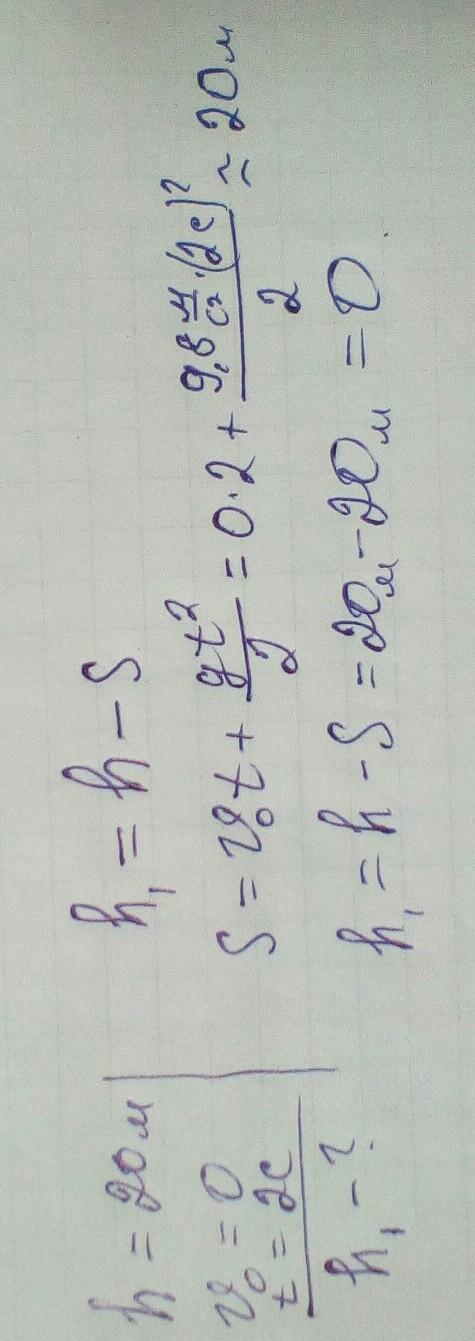 h = 20м
v₀ = 0
t = 2с
h₁ - ?
h₁ = h - S
S = v₀t + gt²/2 = 0·2 + 9,8 м/с²·(2с)²/2 ≃ 20м
h₁ = h - S = 20м - 20м = 0